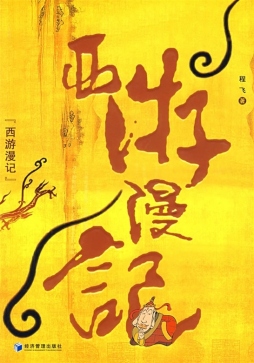 西游漫記
程飞 著
『西游漫记』
经济管理出版社